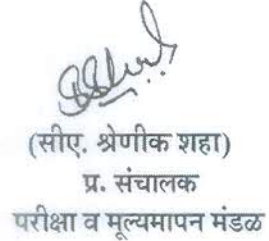 (सीए. श्रेणीक शहा)
प्र. संचालक
परीक्षा व मूल्यमापन मंडळ